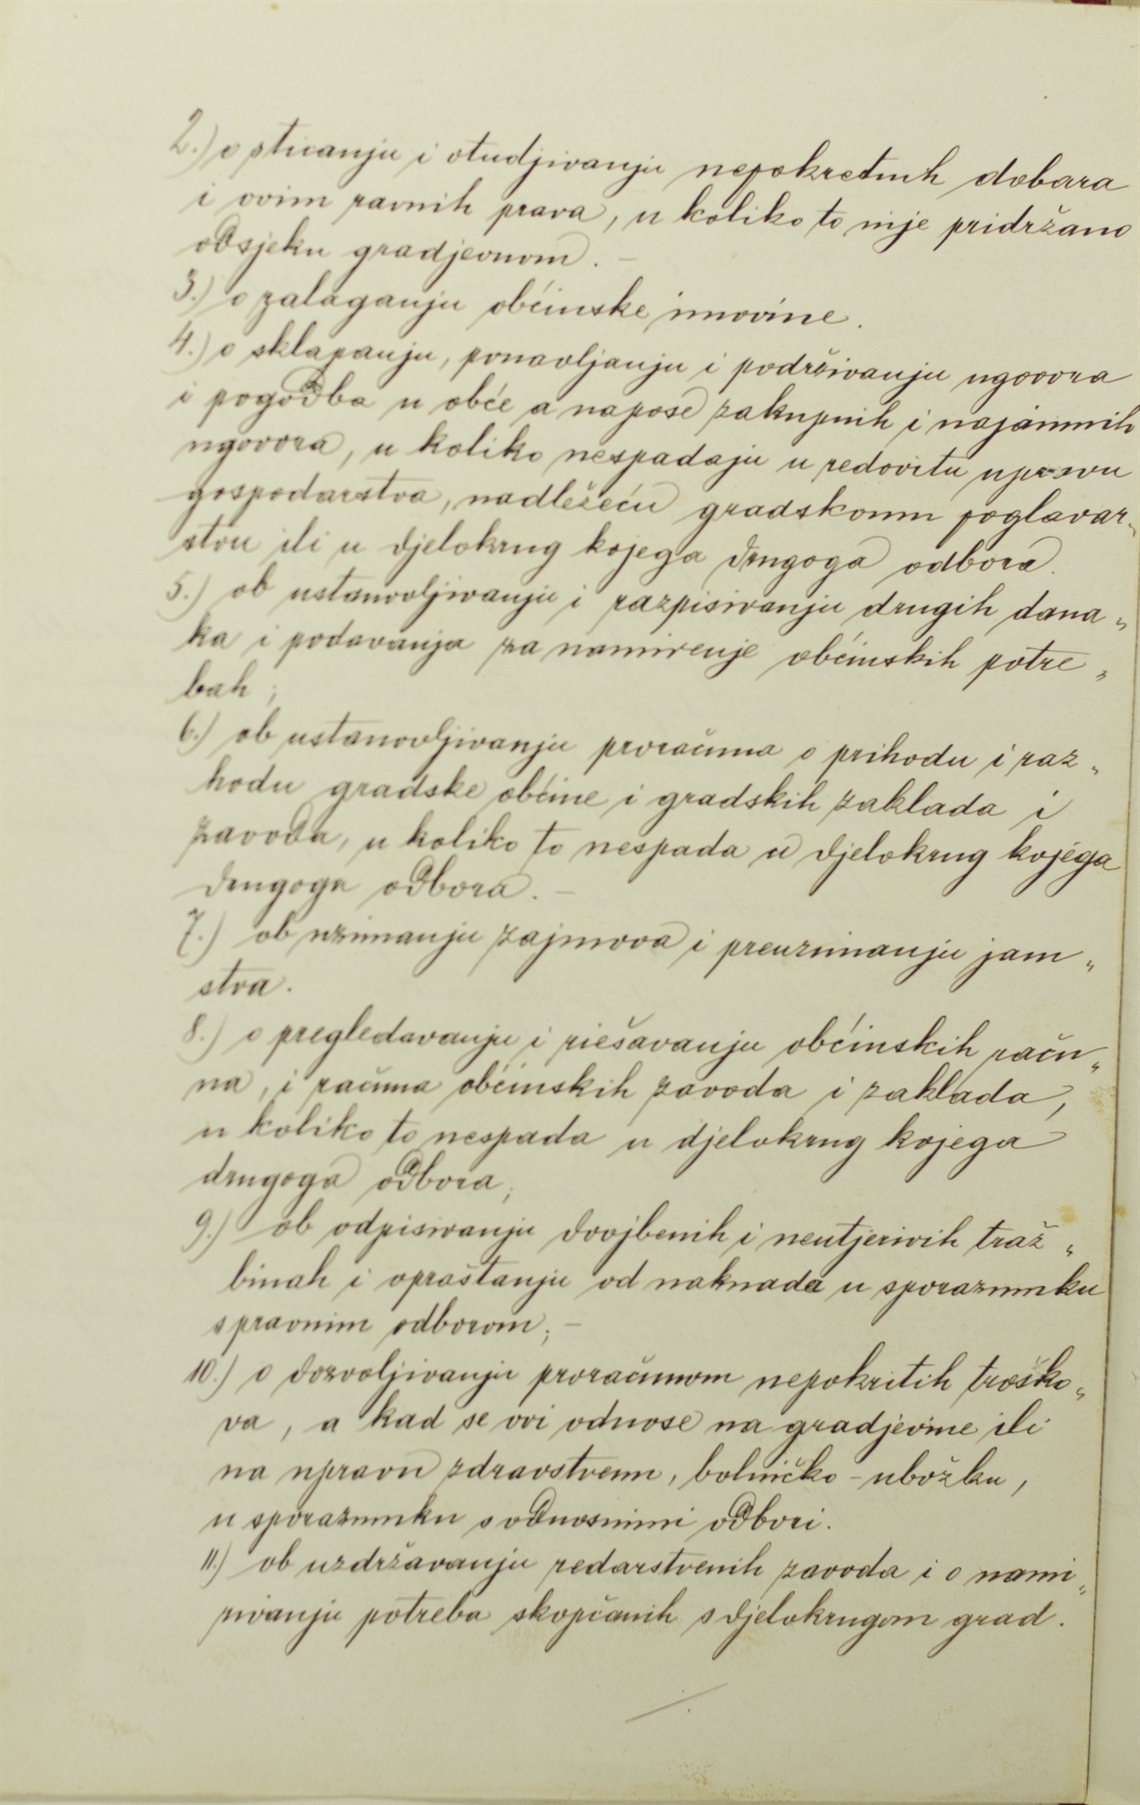 2.) o sticanju i otudjivanju nepokretnih dobara
i ovim ravnih prava, u koliko to nije pridržano
odsjeku gradjevnom. –
3.) o zalaganju obćinske imovine.
4.) o sklapanju, ponavljanju i podrživanju ugovora
i pogodba u obće a napose zakupnih i najamnih
ugovora, u koliko nespadaju u redovitu upravu
gospodarstva, nadležeću gradskomu poglavar„
stvu ili u djelokrug kojega drugoga odbora.
5.) ob ustanovljivanju i razpisivanju drugih dana„
ka i podavanja za namirenje obćinskih potre„
bah;
6.) ob ustanovljivanju proračuna o prihodu i raz„
hodu gradske obćine i gradskih zaklada i
zavoda, u koliko to nespada u djelokrug kojega
drugoga odbora. –
7.) ob uzimanju zajmova i preuzimanju jam„
stva.
8.) o pregledavanju i riešavanju obćinskih raču„
na, i računa obćinskih zavoda i zaklada,
u koliko to nespada u djelokrug kojega
drugoga odbora;
9.) ob odpisivanju dvojbenih i neutjerivih traž„
binah i opraštanju od naknada u sporazumku
s pravnim odborom; –
10.) o dozvoljivanju proračunom nepokritih troško„
va, a kad se ovi odnose na gradjevine ili
na upravu zdravstvenu, bolničko-ubožku,
u sporazumku s odnosnimi odbori.
11.) ob uzdržavanju redarstvenih zavoda i o nami„
rivanju potreba skopčanih s djelokrugom grad.